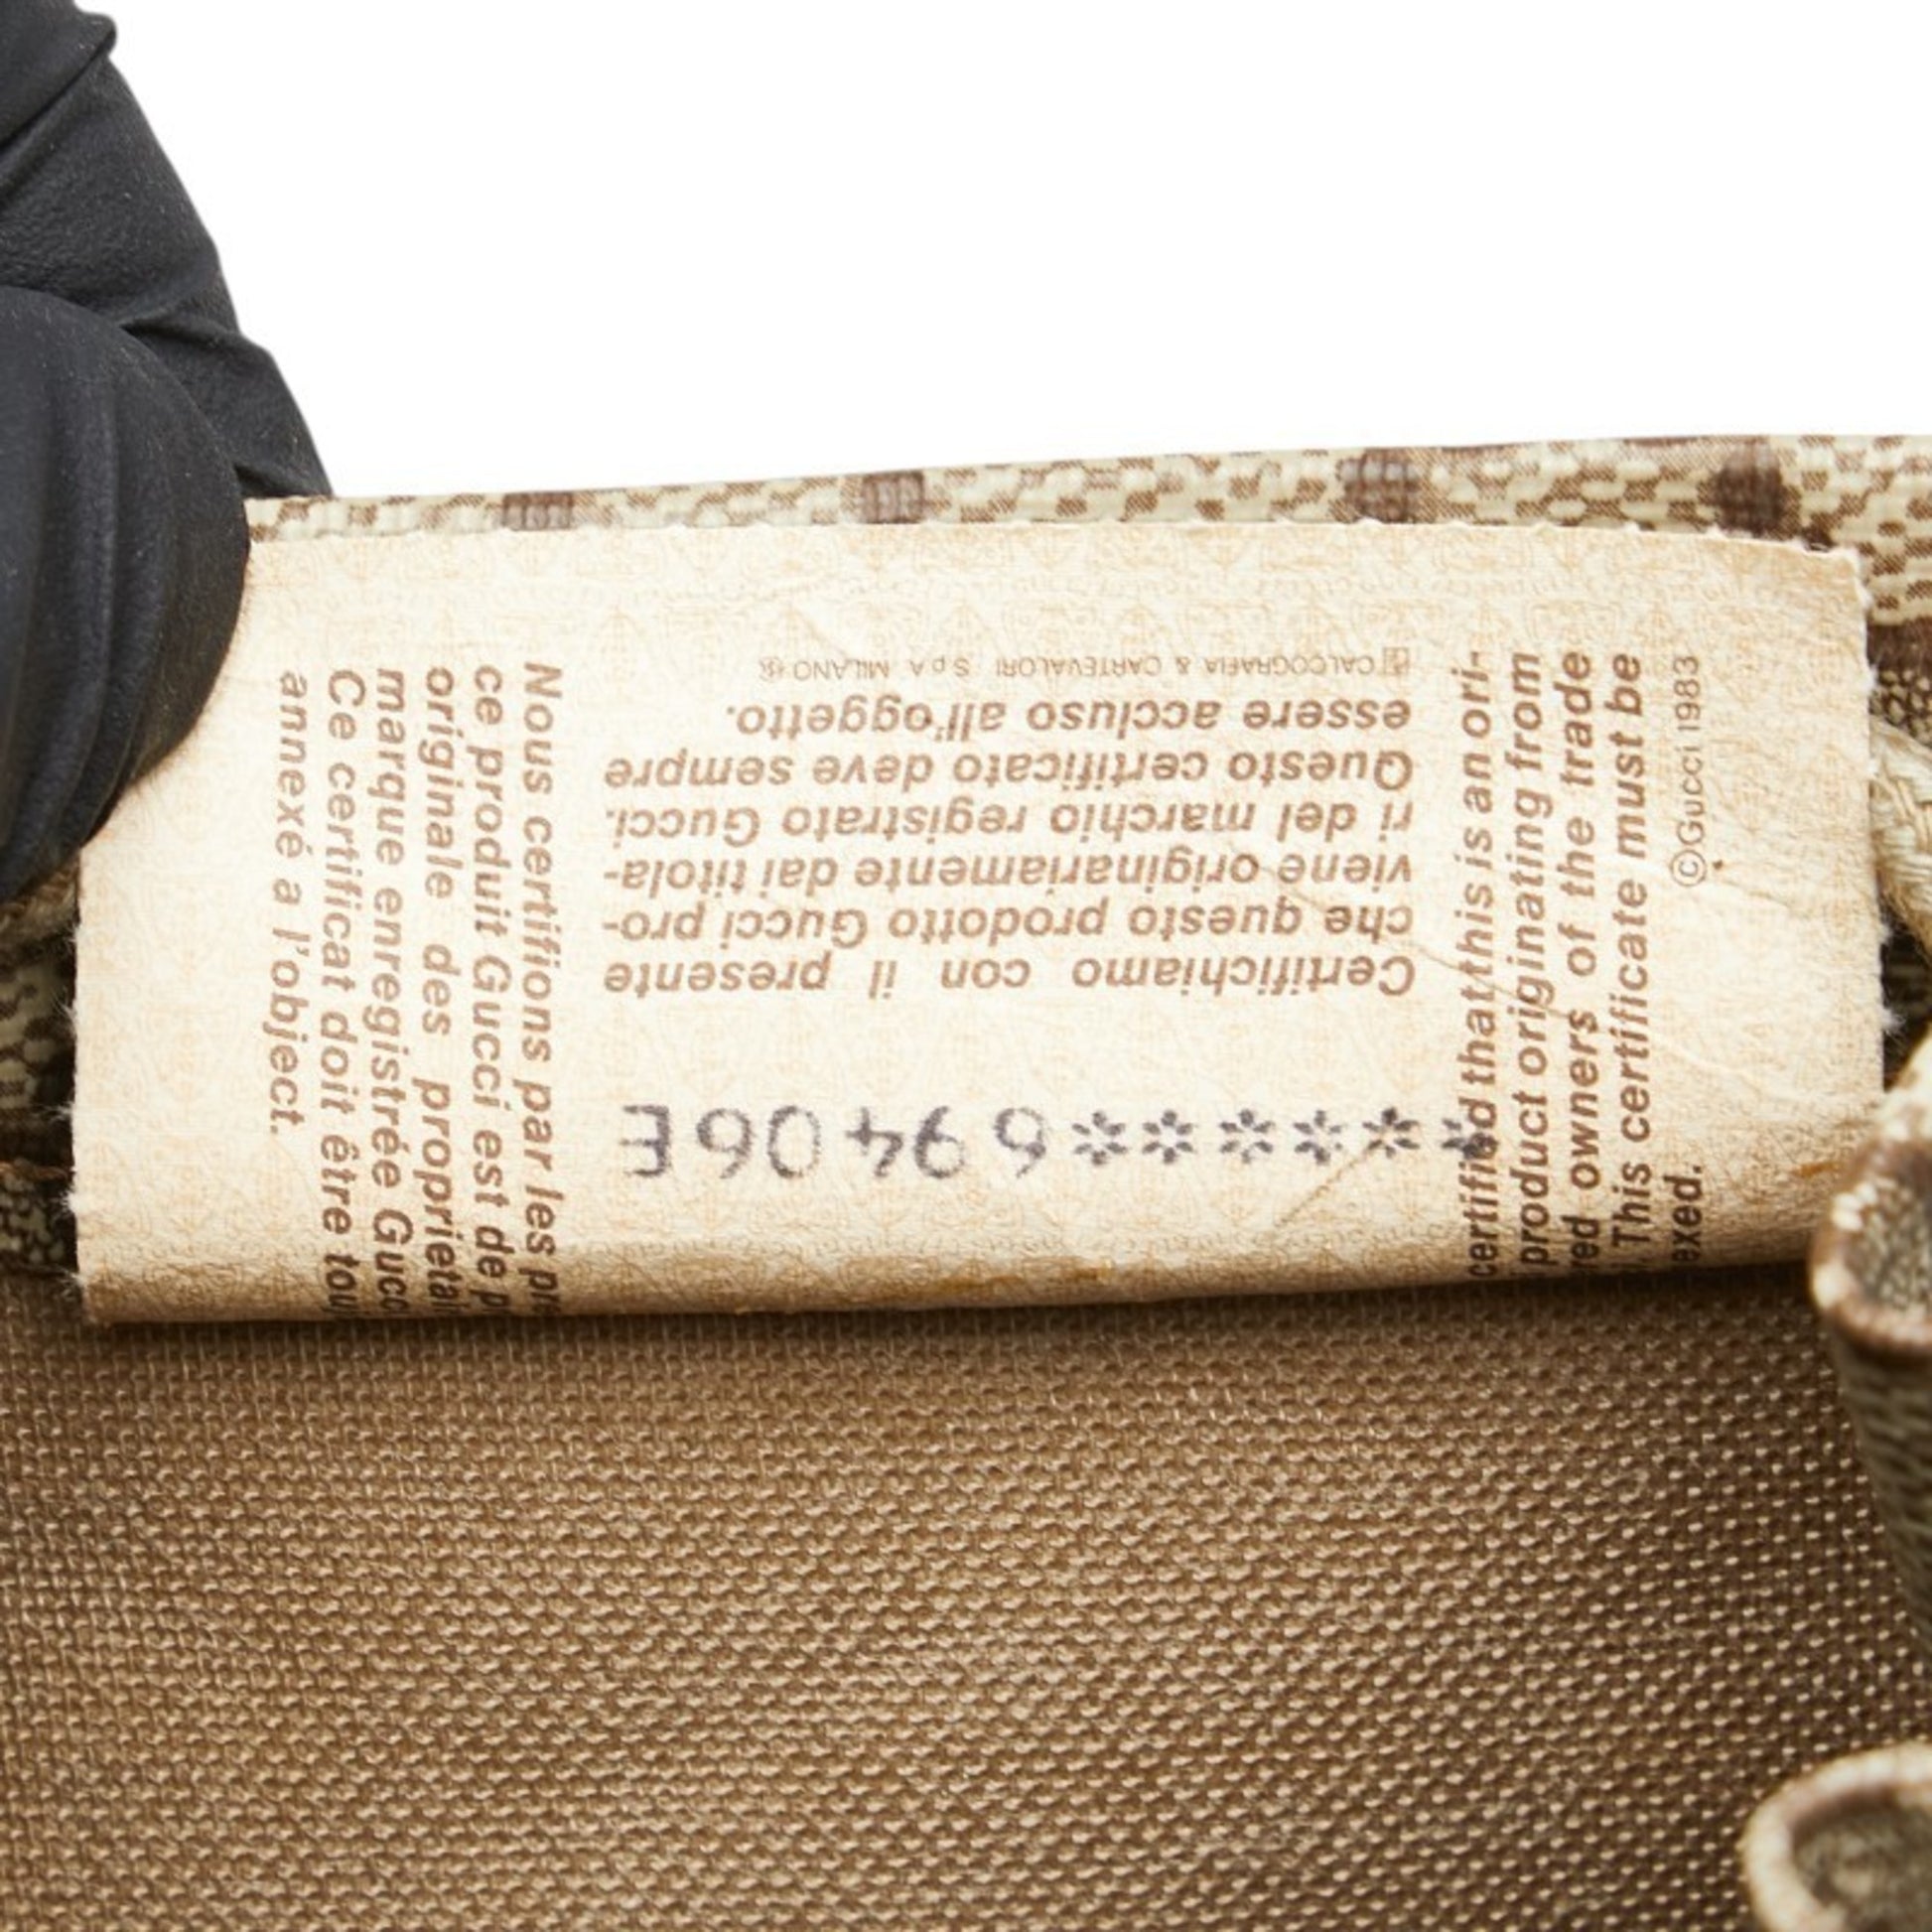 Certifichiamo con il presente
che questo prodotto Gucci pro-
viene originariamente dai titola-
ri del marchio registrato Gucci.
Questo certificato deve sempre
essere accluso all'oggetto.
CALCOGRAFIA & CARTEVALORI SpA MILANO
Nous certifions par les pr
ce produit Gucci est de p
originale des propriétai
marque enregistrée Gucc
Ce certificat doit être tou
annexé a l'object.
certified that this is an ori-
product originating from
red owners of the trade
This certificate must be
exed.
©Gucci 1983